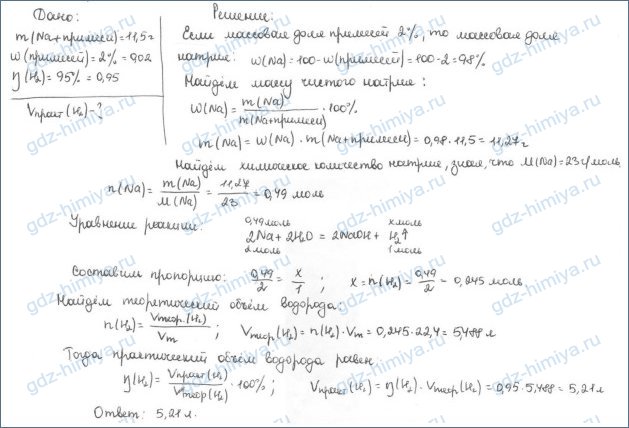 Дано:
m(Na+примеси)=11,5г
w(примесей)=2%=0,02
η(H₂)=95%=0,95
Vпракт(H₂)-?
Решение:
Если массовая доля примесей 2%, то массовая доля
натрия: w(Na)=100-w(примесей)=100-2=98%
Найдём массу чистого натрия:
w(Na)=m(Na)/m(Na+примеси)·100%
m(Na)=w(Na)·m(Na+примеси)=0,98·11,5=11,27г
Найдём химическое количество натрия, зная, что M(Na)=23г/моль
n(Na)=m(Na)/M(Na)=11,27/23=0,49 моль
Уравнение реакции:
0,49моль x моль
2Na+2H₂O=2NaOH+H₂↑
2моль 1моль
Составим пропорцию: 0,49/2=x/1; x=n(H₂)=0,49/2=0,245 моль
Найдём теоретический объём водорода:
n(H₂)=Vтеор(H₂)/Vm; Vтеор(H₂)=n(H₂)·Vm=0,245·22,4=5,488л
Тогда практический объём водорода равен:
η(H₂)=Vпракт(H₂)/Vтеор(H₂)·100%; Vпракт(H₂)=η(H₂)·Vтеор(H₂)=0,95·5,488=5,21л
Ответ: 5,21л.
gdz-himiya.ru